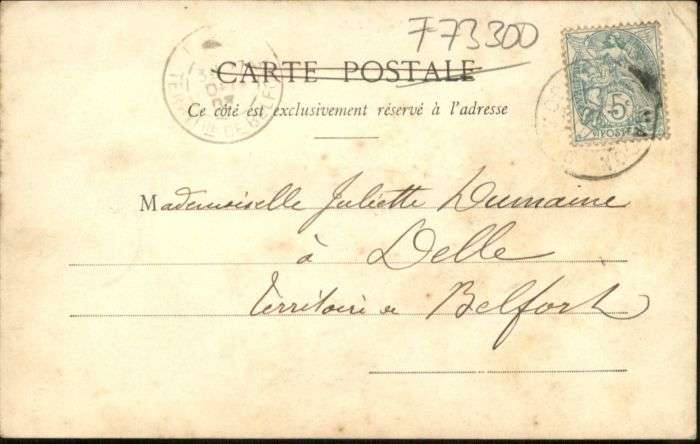 F73300
CARTE POSTALE
Ce côté est exclusivement réservé à l'adresse
TERRITRE DE BELFORT
5c
POSTES
Mademoiselle Juliette Dumaine
à Delle
Territoire de Belfort